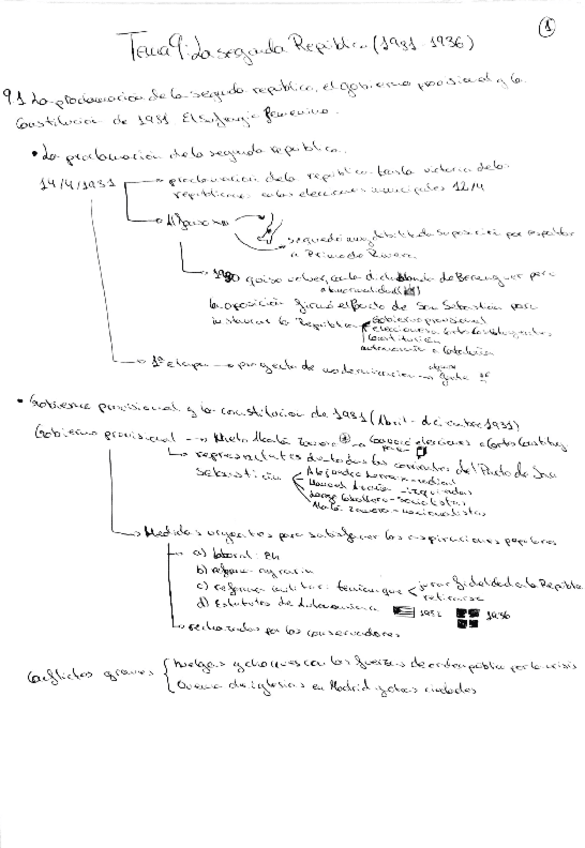 1
Tema 9: La segunda República (1931-1936)
9.1 La proclamación de la segunda república, el gobierno provisional y la
Constitución de 1931. El sufragio femenino.
• La proclamación de la segunda república.
14/4/1931 → proclamación de la república tras la victoria de los
republicanos en las elecciones municipales 12/4
→ Alfonso XIII
se quedó muy debilitada su posición por respaldar
a Primo de Rivera
→ 1930 quiso volver con la dictablanda de Berenguer pero
la oposición firmó el Pacto de San Sebastián para
instaurar la República
gobierno provisional
elecciones a Cortes Constituyentes
Constitución
autonomía a Cataluña
→ 1ª etapa → proyecto de modernización →
• Gobierno provisional y la constitución de 1931 (Abril - diciembre 1931)
Gobierno provisional → Niceto Alcalá Zamora → convocó elecciones a Cortes Constituy
→ representantes de todas las corrientes del Pacto de San
Sebastián
Alejandro Lerroux - radical
Manuel Azaña - izquierdas
Largo Caballero - socialistas
Alcalá Zamora -
→ Medidas urgentes para satisfacer las aspiraciones populares
a) laboral: 8h
b) reforma agraria
c) reforma militar: tienen que
jurar fidelidad a la República
retirarse
d) Estatutos de Autonomía 1932 1936
→ rechazadas por los conservadores
Conflictos graves
Huelgas y choques con las fuerzas de orden público por la crisis
Quema de iglesias en Madrid y otras ciudades